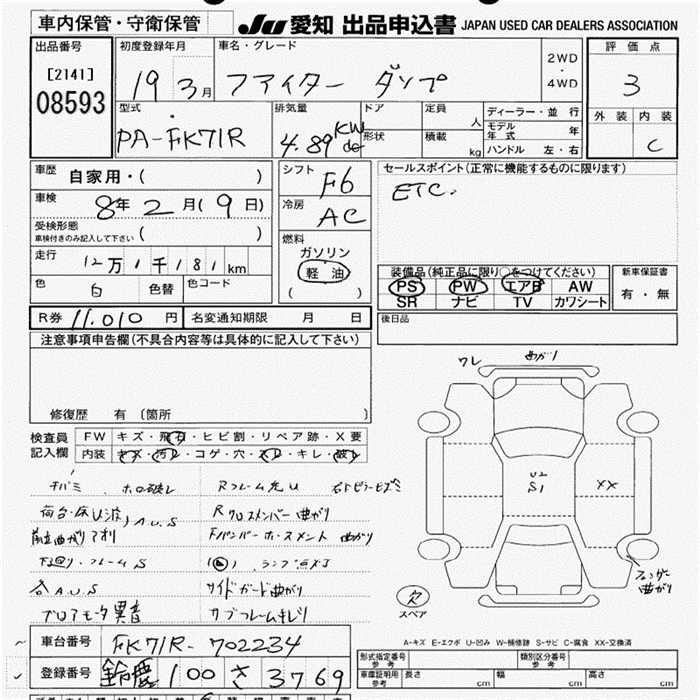 車内保管・守衛保管
JU 愛知 出品申込書 JAPAN USED CAR DEALERS ASSOCIATION
出品番号
[2141]
08593
初度登録年月
19 3月
車名・グレード
ファイター ダンプ
2WD
・
4WD
評価点
3
外装 内装
C
型式
PA-FK71R
排気量
4.89 KW
ドア
形状
定員
人
積載
kg
ディーラー・並行
モデル年式 年
ハンドル 左・右
車歴
自家用・( )
車検
8年2月(9日)
受検形態
車検付きのみ記入して下さい ( )
走行
12万1千181km
色
白
色替
色コード
シフト
F6
冷房
AC
燃料
ガソリン
軽油
( )
セールスポイント(正常に機能するものに限ります)
ETC.
装備品(純正品に限り○をつけてください)
PS PW エアB AW
SR ナビ TV カワシート
新車保証書
有・無
R券 11.010円
名変通知期限 月 日
後日品
注意事項申告欄(不具合内容等は具体的に記入して下さい)
修復歴 有 (箇所
検査員
記入欄
FW キズ・飛石・ヒビ割・リペア跡・X要
内装 キズ・汚レ・コゲ・穴・スレ・キレ・破レ
チバミ ホロ破レ
荷台・床U波 A.U.S
下廻り・フレームS
各A.U.S
ブロアモータ異音
Rクロスメンバー曲がり
サイドガード曲がり
サブフレームキレリ
ワレ
曲がり
U2
S1
XX
フェンダー
曲がり
欠
スペア
A-キズ E-エクボ U-凹み W-補修跡 S-サビ C-腐食 XX-交換済
車台番号
FK71R-702234
登録番号
鈴鹿 100 さ 3769
形式指定番号
参考
類別区分番号
参考
車庫証明用
参考
長さ cm
幅 cm
高さ cm